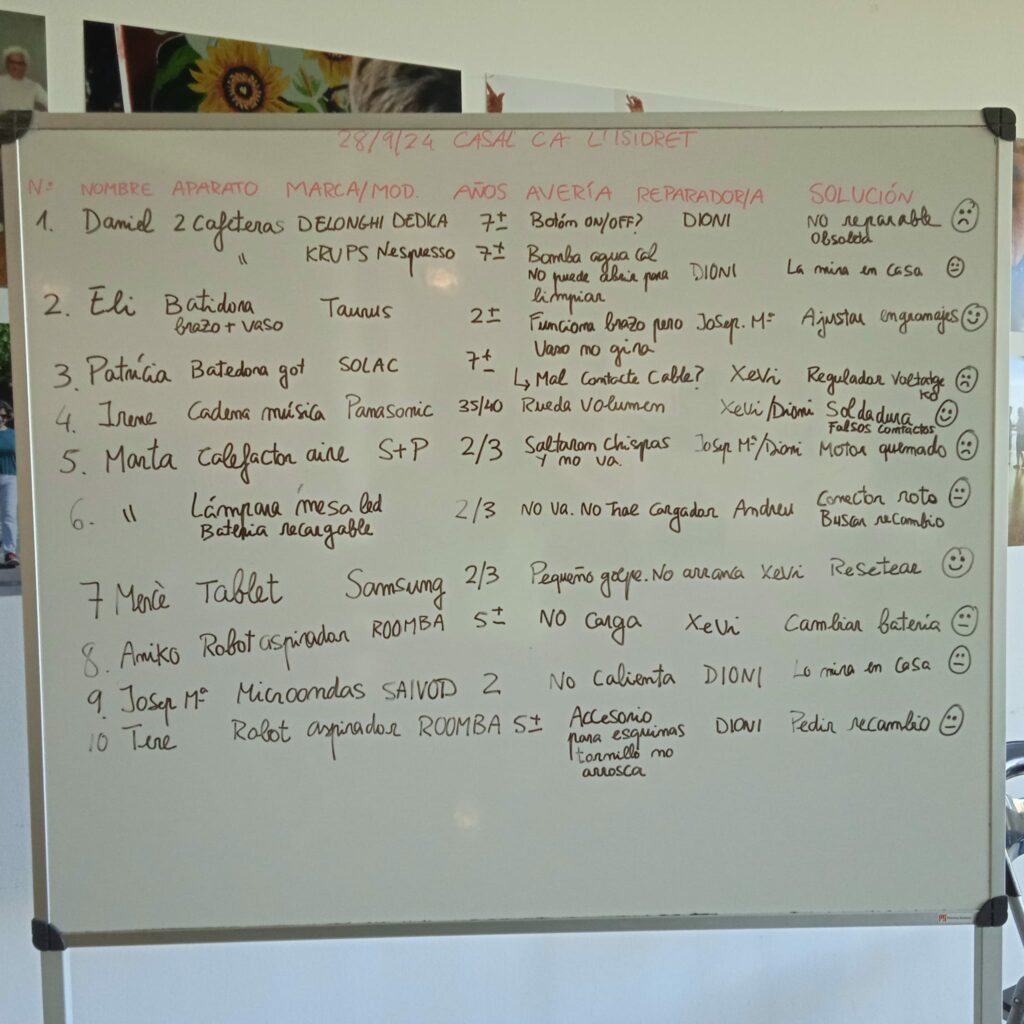 28/9/24 CASAL CA L'ISIDRET
Nº NOMBRE APARATO MARCA/MOD. AÑOS AVERÍA REPARADOR/A SOLUCIÓN
1. Daniel 2 Cafeteras DELONGHI DEDICA 7± Botón ON/OFF? DIONI NO reparable
Obsoleta
" KRUPS Nespresso 7± Bomba agua Cal
NO puede abrir para DIONI La mira en casa
limpiar
2. Eli Batidora Taurus 2± Funciona brazo pero Josep. Mª Ajustar engranajes
brazo + vaso Vaso no gira
3. Patrícia Batedora got SOLAC 7± ↳ Mal Contacte Cable? Xevi Regulador Voltatge
KO
4. Irene Cadena música Panasonic 35/40 Rueda Volumen Xevi/Dioni Soldadura
Falsos contactos
5. Marta Calefactor aire S+P 2/3 Saltaron chispas Josep Mª/Dioni Motor quemado
Y no va.
6. " Lámpara mesa led 2/3 NO Va. No Trae Cargador Andreu Conector roto
Batería recargable Buscar recambio
7 Mercè Tablet Samsung 2/3 Pequeño golpe. No arranca Xevi Resetear
8. Aniko Robot aspirador ROOMBA 5± NO Carga Xevi Cambiar batería
9. Josep Mª Microondas SAIVOD 2 No Calienta DIONI Lo mira en casa
10 Tere Robot aspirador ROOMBA 5± Accesorio DIONI Pedir recambio
para esquinas
tornillo no
arrosca